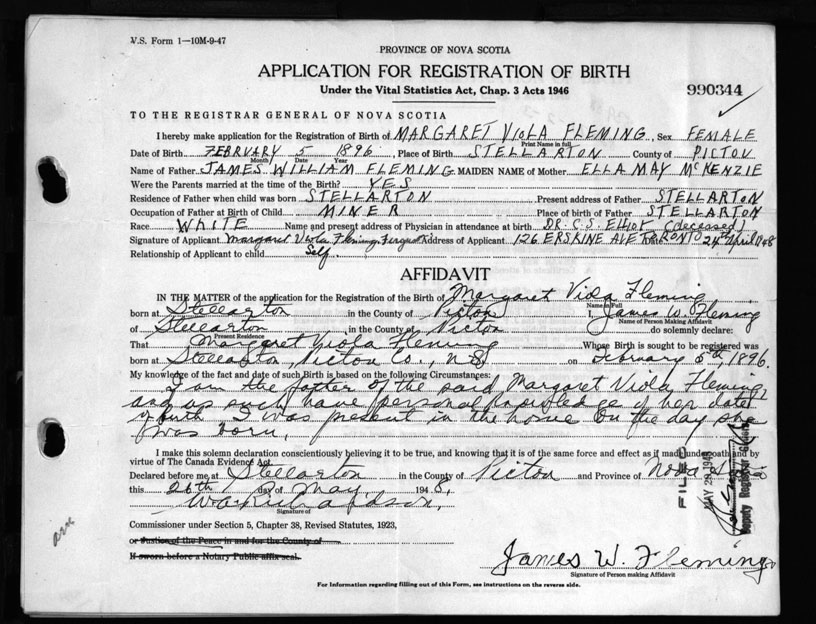 V.S. Form 1—10M-9-47
PROVINCE OF NOVA SCOTIA
APPLICATION FOR REGISTRATION OF BIRTH
Under the Vital Statistics Act, Chap. 3 Acts 1946
990344
TO THE REGISTRAR GENERAL OF NOVA SCOTIA
I hereby make application for the Registration of Birth of MARGARET VIOLA FLEMING, Sex FEMALE
Print Name in full
Date of Birth FEBRUARY 5 1896, Place of Birth STELLARTON County of PICTOU
Month Date Year
Name of Father JAMES WILLIAM FLEMING MAIDEN NAME of Mother ELLA MAY McKENZIE
Were the Parents married at the time of the Birth? YES
Residence of Father when child was born STELLARTON Present address of Father STELLARTON
Occupation of Father at Birth of Child MINER Place of birth of Father STELLARTON
Race WHITE Name and present address of Physician in attendance at birth DR. C.S. ELLIOT (deceased)
Signature of Applicant Margaret Viola Fleming Ferguson Address of Applicant 126 ERSKINE AVE TORONTO 24th April 1948
Relationship of Applicant to child Self.
AFFIDAVIT
IN THE MATTER of the application for the Registration of the Birth of Margaret Viola Fleming
Name in Full
born at Stellarton in the County of Pictou I, James W. Fleming
Name of Person Making Affidavit
of Stellarton, in the County of Pictou do solemnly declare:
Present Residence
That Margaret Viola Fleming Whose Birth is sought to be registered was
born at Stellarton, Pictou Co., N.S. on February 5th, 1896.
My knowledge of the fact and date of such Birth is based on the following Circumstances:
I am the father of the said Margaret Viola Fleming
and as such have personal knowledge of her date
of birth. I was present in the house on the day she
was born.
I make this solemn declaration conscientiously believing it to be true, and knowing that it is of the same force and effect as if made under oath and by
virtue of The Canada Evidence Act.
Declared before me at Stellarton in the County of Pictou and Province of Nova Scotia
this 26th day of May 1948.
W. A. Richardson.
Signature of
Commissioner under Section 5, Chapter 38, Revised Statutes, 1923,
or Justice of the Peace in and for the County of
If sworn before a Notary Public affix seal.
James W. Fleming
Signature of Person making Affidavit
For Information regarding filling out of this Form, see instructions on the reverse side.
FILED
MAY 29 1948
Deputy Registrar General